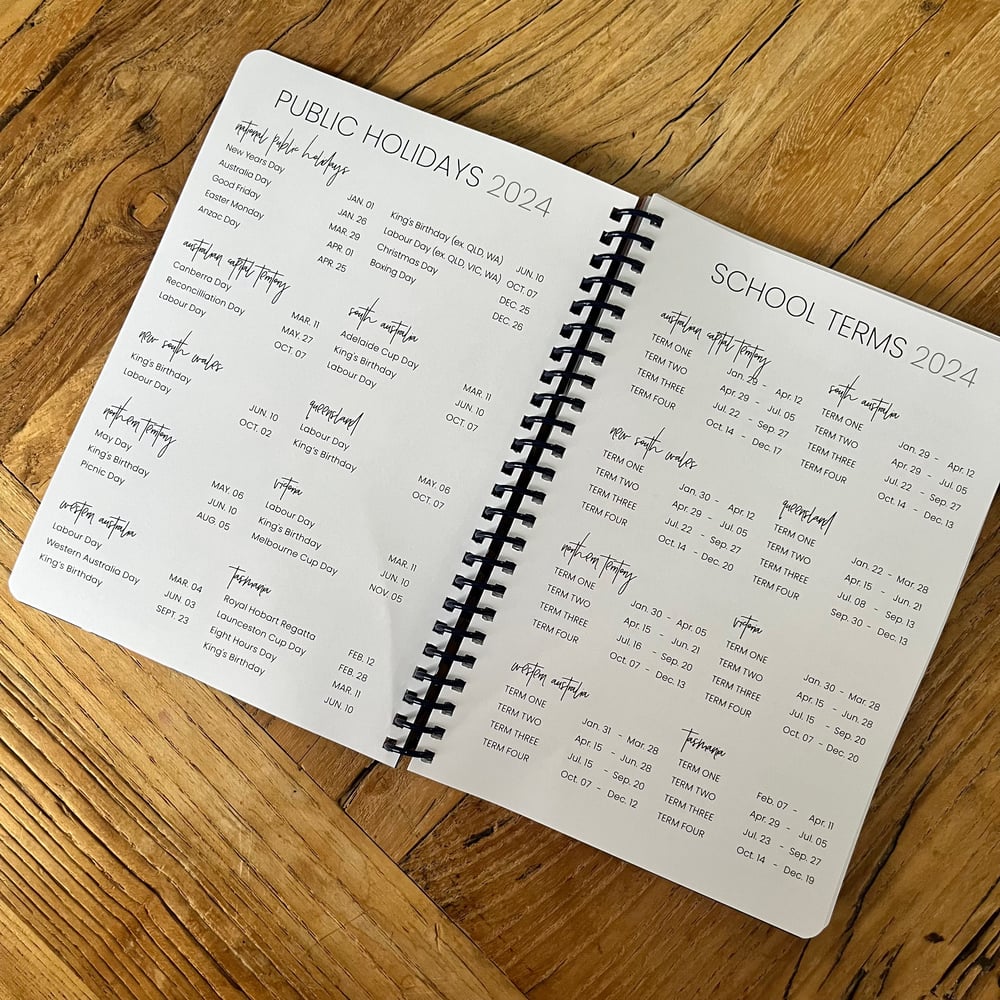 PUBLIC HOLIDAYS 2024
national public holidays
New Years Day JAN. 01
Australia Day JAN. 26
Good Friday MAR. 29
Easter Monday APR. 01
Anzac Day APR. 25
King's Birthday (ex. QLD, WA) JUN. 10
Labour Day (ex. QLD, VIC, WA) OCT. 07
Christmas Day DEC. 25
Boxing Day DEC. 26
australian capital territory
Canberra Day MAR. 11
Reconcilliation Day MAY. 27
Labour Day OCT. 07
south australia
Adelaide Cup Day MAR. 11
King's Birthday JUN. 10
Labour Day OCT. 07
new south wales
King's Birthday JUN. 10
Labour Day OCT. 02
queensland
Labour Day MAY. 06
King's Birthday OCT. 07
northern territory
May Day MAY. 06
King's Birthday JUN. 10
Picnic Day AUG. 05
victoria
Labour Day MAR. 11
King's Birthday JUN. 10
Melbourne Cup Day NOV. 05
western australia
Labour Day MAR. 04
Western Australia Day JUN. 03
King's Birthday SEPT. 23
Tasmania
Royal Hobart Regatta FEB. 12
Launceston Cup Day FEB. 28
Eight Hours Day MAR. 11
King's Birthday JUN. 10
SCHOOL TERMS 2024
australian capital territory
TERM ONE Jan. 29 - Apr. 12
TERM TWO Apr. 29 - Jul. 05
TERM THREE Jul. 22 - Sep. 27
TERM FOUR Oct. 14 - Dec. 17
south australia
TERM ONE Jan. 29 - Apr. 12
TERM TWO Apr. 29 - Jul. 05
TERM THREE Jul. 22 - Sep. 27
TERM FOUR Oct. 14 - Dec. 13
new south wales
TERM ONE Jan. 30 - Apr. 12
TERM TWO Apr. 29 - Jul. 05
TERM THREE Jul. 22 - Sep. 27
TERM FOUR Oct. 14 - Dec. 20
queensland
TERM ONE Jan. 22 - Mar. 28
TERM TWO Apr. 15 - Jun. 21
TERM THREE Jul. 08 - Sep. 13
TERM FOUR Sep. 30 - Dec. 13
northern territory
TERM ONE Jan. 30 - Apr. 05
TERM TWO Apr. 15 - Jun. 21
TERM THREE Jul. 16 - Sep. 20
TERM FOUR Oct. 07 - Dec. 13
victoria
TERM ONE Jan. 30 - Mar. 28
TERM TWO Apr. 15 - Jun. 28
TERM THREE Jul. 15 - Sep. 20
TERM FOUR Oct. 07 - Dec. 20
western australia
TERM ONE Jan. 31 - Mar. 28
TERM TWO Apr. 15 - Jun. 28
TERM THREE Jul. 15 - Sep. 20
TERM FOUR Oct. 07 - Dec. 12
Tasmania
TERM ONE Feb. 07 - Apr. 11
TERM TWO Apr. 29 - Jul. 05
TERM THREE Jul. 23 - Sep. 27
TERM FOUR Oct. 14 - Dec. 19